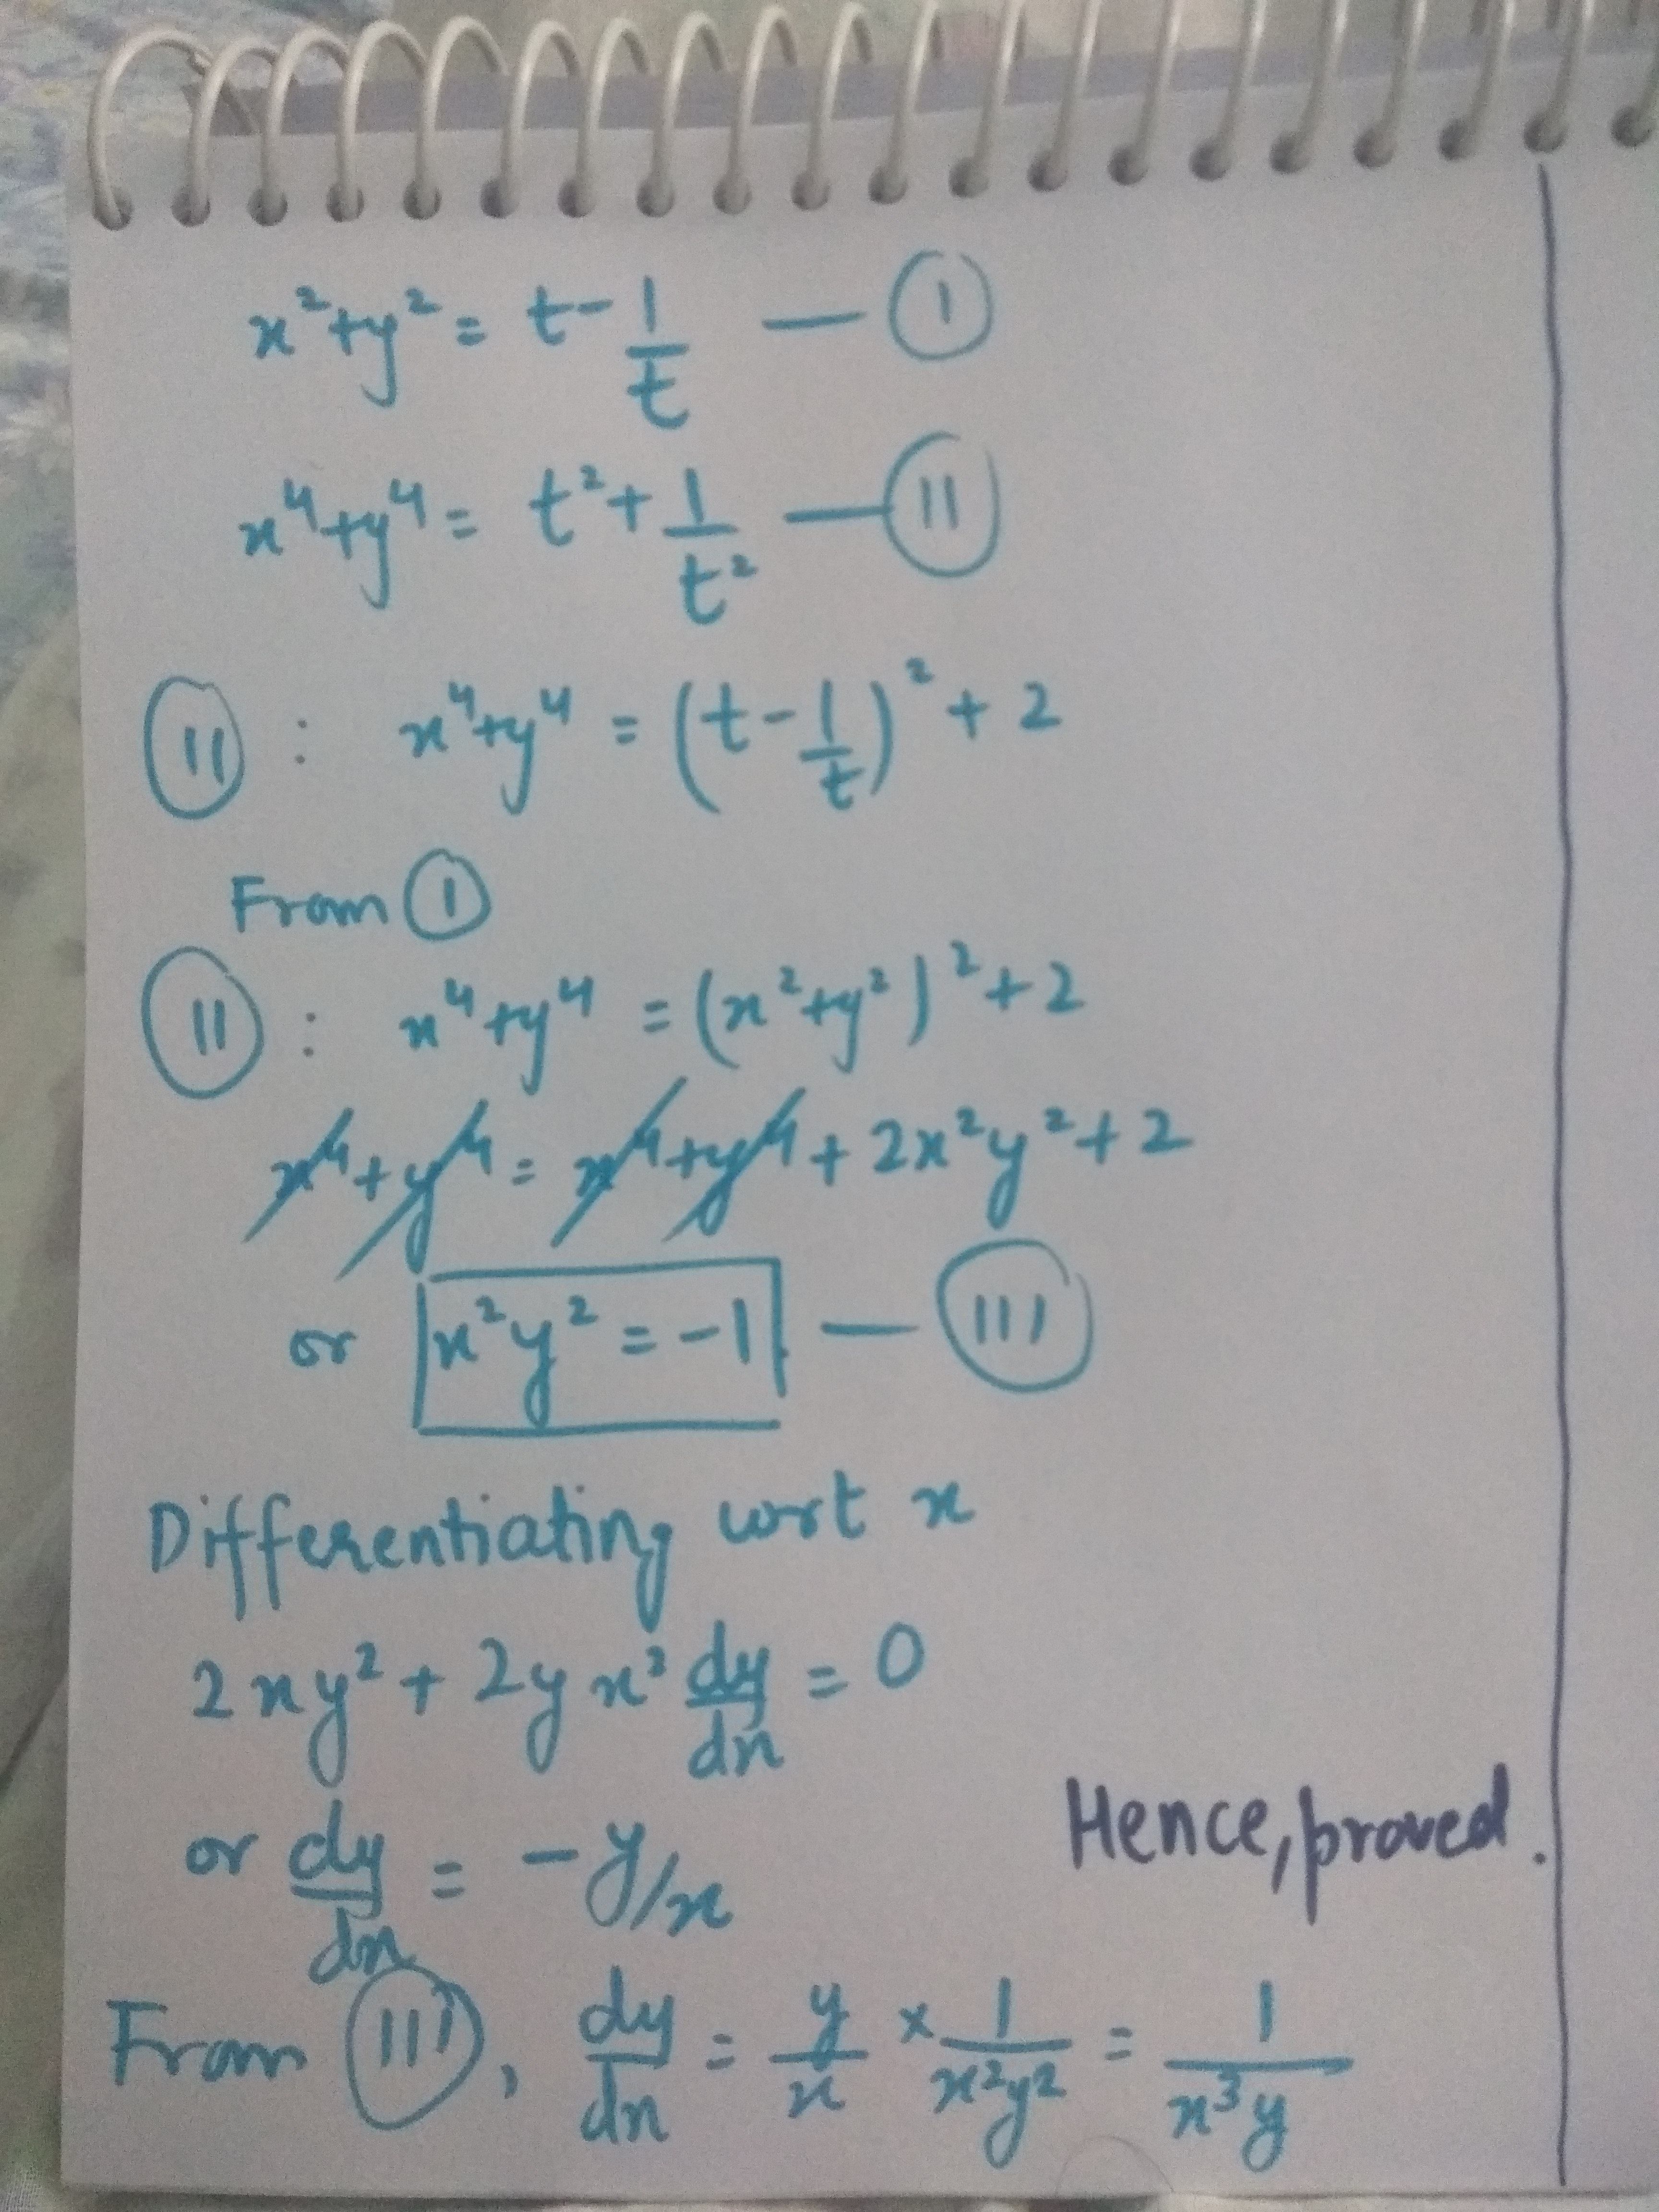 x²+y² = t - 1/t — (I)
x⁴+y⁴ = t² + 1/t² — (II)
(II) : x⁴+y⁴ = (t - 1/t)² + 2
From (I)
(II) : x⁴+y⁴ = (x²+y²)² + 2
x⁴+y⁴ = x⁴+y⁴ + 2x²y² + 2
or x²y² = -1 — (III)
Differentiating wrt x
2xy² + 2yx² dy/dx = 0
or dy/dx = -y/x
Hence, proved.
From (III), dy/dx = y/x × 1/x²y² = 1/x³y